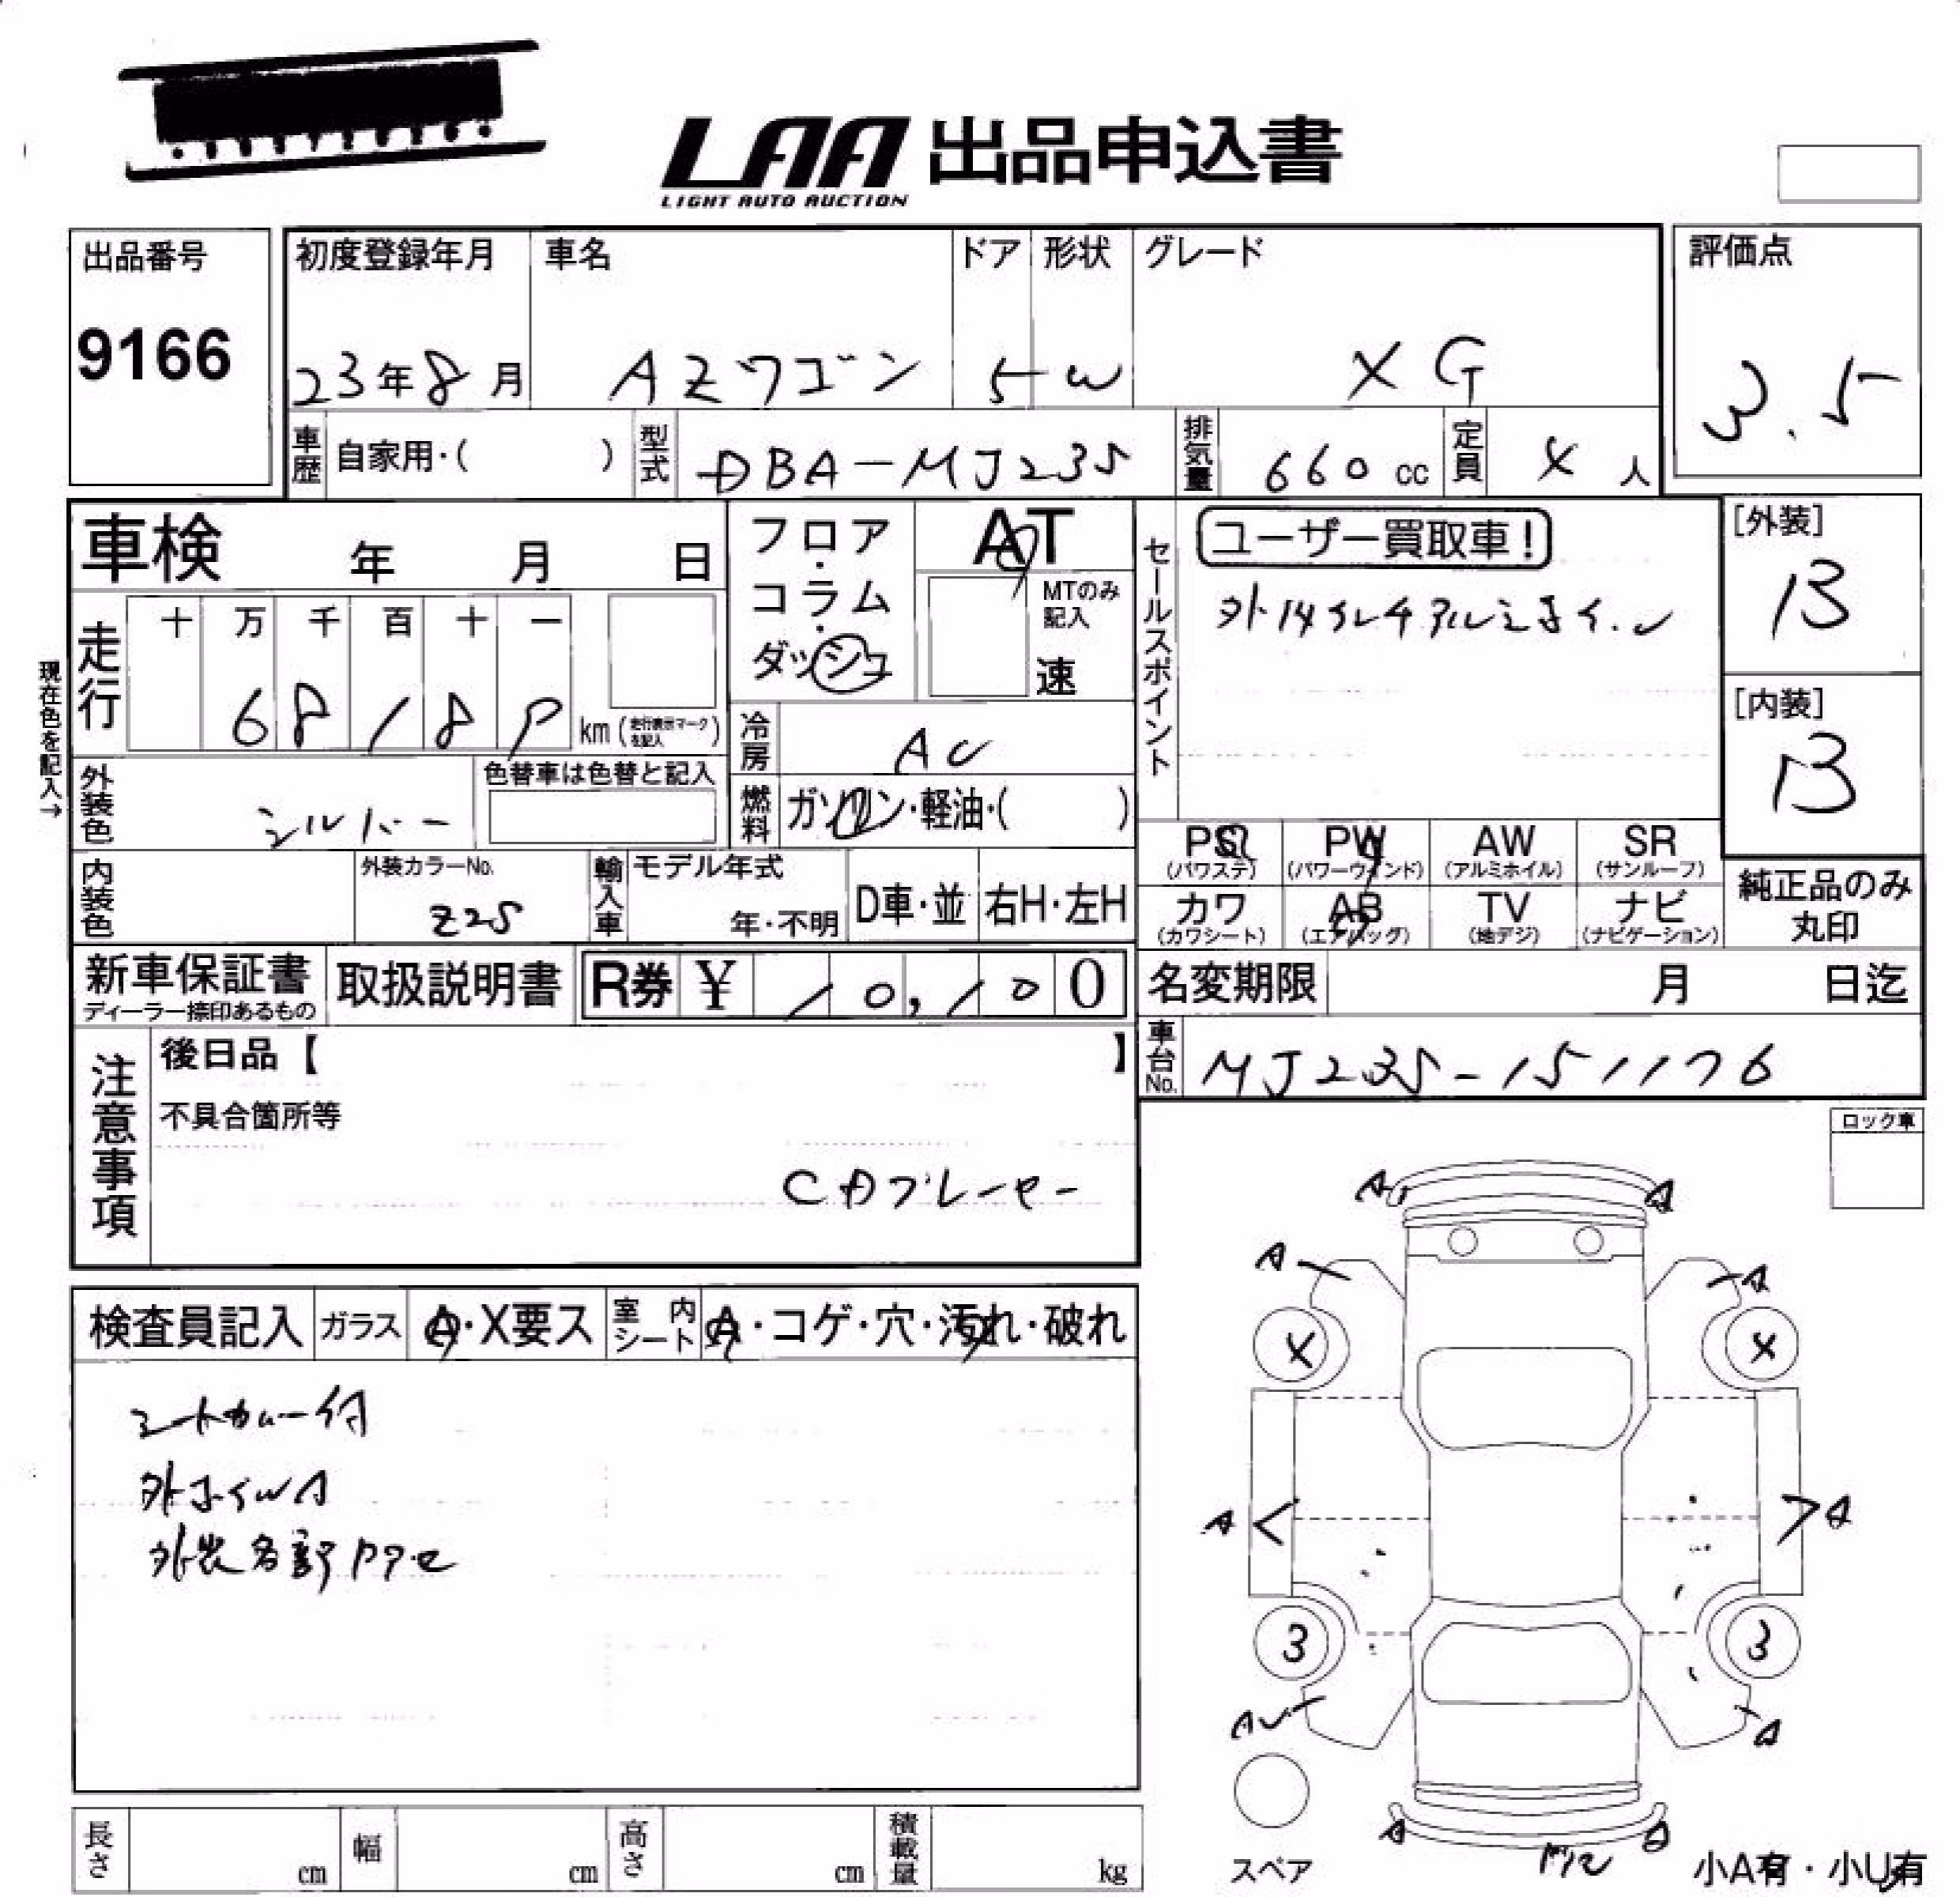 LAA 出品申込書
LIGHT AUTO AUCTION
出品番号
9166
初度登録年月
23年8月
車名
AZワゴン
ドア
5
形状
W
グレード
XG
評価点
3.5
車歴
自家用・( )
型式
DBA-MJ23S
排気量
660 cc
定員
4人
車検 年 月 日
フロア・コラム・ダッシュ
AT
MTのみ記入
速
セールスポイント
ユーザー買取車!
[外装]
B
[内装]
B
現在色を記入→
走行
十 万 千 百 十 一
68189
km (走行表示マークを記入)
冷房
AC
外装色
シルバー
色替車は色替と記入
燃料
ガソリン・軽油・( )
PS (パワステ)
PW (パワーウィンド)
AW (アルミホイル)
SR (サンルーフ)
内装色
外装カラーNo.
Z2S
輸入車
モデル年式
年・不明
D車・並
右H・左H
カワ (カワシート)
AB (エアバッグ)
TV (地デジ)
ナビ (ナビゲーション)
純正品のみ
丸印
新車保証書
ディーラー捺印あるもの
取扱説明書
R券 ¥ 10,100
名変期限 月 日迄
車台No.
MJ23S-151176
注意事項
後日品【 】
不具合箇所等
CDプレーヤー
ロック車
検査員記入
ガラス
A・X要ス
室内シート
A・コゲ・穴・汚れ・破れ
シートカバー付
外ホイルA
A A
A A
4 4
A A
3 3
AU A
A
スペア
小A有・小U有
長さ cm
幅 cm
高さ cm
積載量 kg